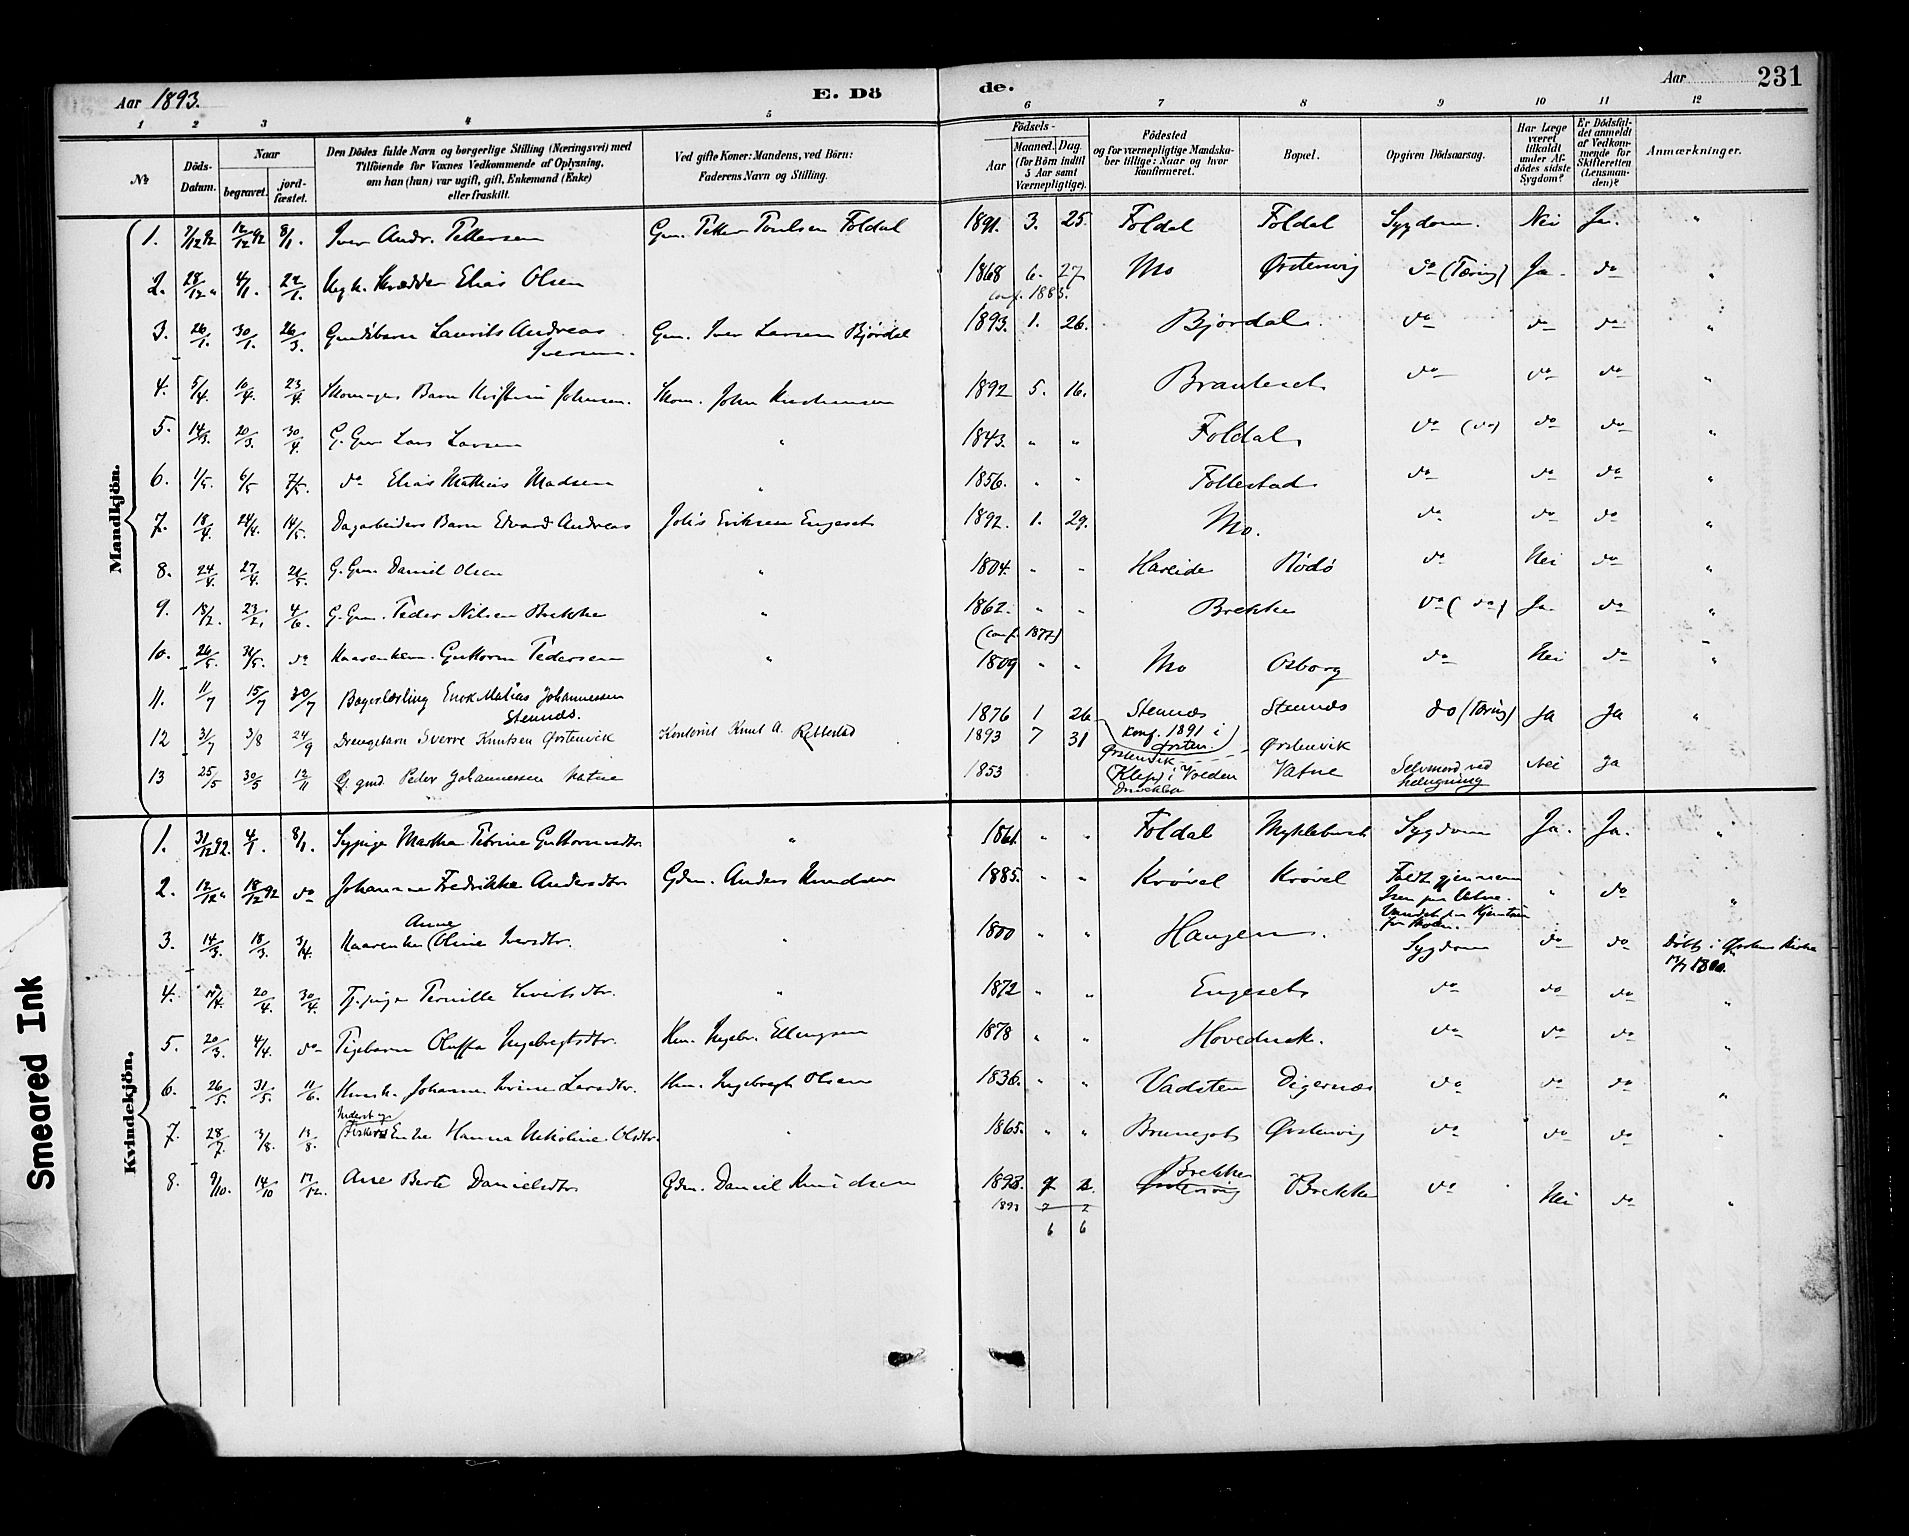 Aar 1893.
E. Dö
de.
Aar
231
1 2 3 4 5 6 7 8 9 10 11 12
№
Döds-
Datum.
Naar
begravet.
jord-
fæstet.
Den Dödes fulde Navn og borgerlige Stilling (Næringsvei) med
Tilföiende for Voxnes Vedkommende af Oplysning,
om han (hun) var ugift, gift, Enkemand (Enke)
eller fraskilt.
Ved gifte Koner: Mandens, ved Börn:
Faderens Navn og Stilling.
Födsels-
Aar
Maaned. Dag.
(for Börn indtil
5 Aar samt
Værnepligtige).
Födested
og for værnepligtige Mandska-
ber tillige: Naar og hvor
konfirmeret.
Bopæl.
Opgiven Dödsaarsag.
Har Læge
været
tilkaldt
under Af-
dödes sidste
Sygdom?
Er Dödsfal-
det anmeldt
af Vedkom-
mende for
Skifteretten
(Lensman-
den)?
Anmærkninger.
Mandkjön.
1. 7/12 92 12/12 92 8/1. Iver Andr. Pettersen Gm. Petter Poulsen Foldal 1891. 3. 25. Foldal Foldal Sygdom. Nei Ja. "
2. 28/12 " 4/1. 22/1. Skrædder Elias Olsen 1868 6. 27 Mo Ørstenvig do (Tæring) Ja. do "
conf. 1883.
3. 26/1. 30/1. 26/3. Gmdsbarn Laurits Andreas Gm. Iver Larsen Bjørdal 1893. 1. 26. Bjørdal. do do do "
Iversen.
4. 5/4. 10/4. 23/4. Barn Johnsen. Skom. John 1892 5. 16. do do do "
5. 14/3. 20/3. 30/4. G. Gm Lars Larsen " 1843. " " Foldal do (do) do do "
6. 1/5. 6/5 7/5. do Elias Mathias Madsen " 1856. " " Follestad do do do "
7. 18/4. 24/4. 14/5. Dagarbeiders Barn Edvard Andreas Eriksen Engeset 1892. 1. 29. Mo. do do do "
8. 24/4. 27/4. 21/5. G. Gm. Daniel Olsen " 1804. " " Hareide Rødø do Nei do "
9. 18/2. 23/2. 4/6. G. Gm. Peder Nilsen Brekke " 1862. " " Brekke do (do) Ja. do "
(conf. 1877)
10. 26/5. 31/5. do Guttorm Pedersen " 1809 " " Mo Osborg do Nei do "
11. 11/7 15/7 30/7 Bagerlærling Enok Matias Johannessen 1876 1 26 Steinnes Steinnes do (Tæring) Ja Ja "
Steinnes. konf. 1891 i
Ørsten.
12 31/7 3/8 24/9 Drengebarn Sverre Knutsen Ørstenvik Kontorist Knut A. Rebbestad 1893 7 31 Ørstenvik Ørstenvik
13 25/5 30/5 12/11 G. gmd. Peder Johannessen Vatne 1853 (Klep) i Volden Vatne Selvmord ved Nei Ja
hængning
Kvindekjön.
1. 31/12 92. 4/1. 8/1. Sypige Martha Petrine Guttormsdtr. " 1861. " " Foldal Myklebust Sygdom Ja. Ja. "
2. 12/12 " 18/12 92 do Johanne Fredrikke Andersdtr Gdm. Anders Knudsen 1885. " " Krøvel Krøvel Faldt gjennem " do "
Isen paa Vatne-
Vandet
3. 14/3. 18/3. 3/4. Anne Oline Iversdtr. " 1800 " " Haugen. Sygdom do do Døbt i Ørsten Kirke
4. 20/4. 30/4. Pernille Sivertsdtr. " 1872 " " Engeset do do do "
5. 20/3. 4/4. do Pigebarn Oluffa Ingebrigtsdtr. Hm. Ingebr. Ellingsen 1878 " " do do do "
6. 26/5. 31/5. 11/6. Husk. Johanne Larsdtr. Hm. Ingebrigt Olsen 1836. " " Vadsten Digernæs do do do "
7. 28/7. 3/8. 13/8. Enke Hanna Nikoline Olsdtr. " 1865. " " Brungot Ørstenvig do do do "
8. 9/10. 14/10 17/12. Ane Berte Danielsdtr Gdm. Daniel Knudsen 1893. 7 2. Brekke Brekke do Nei do "
Ørstenvig
1893 7 2
6 6
Smeared Ink